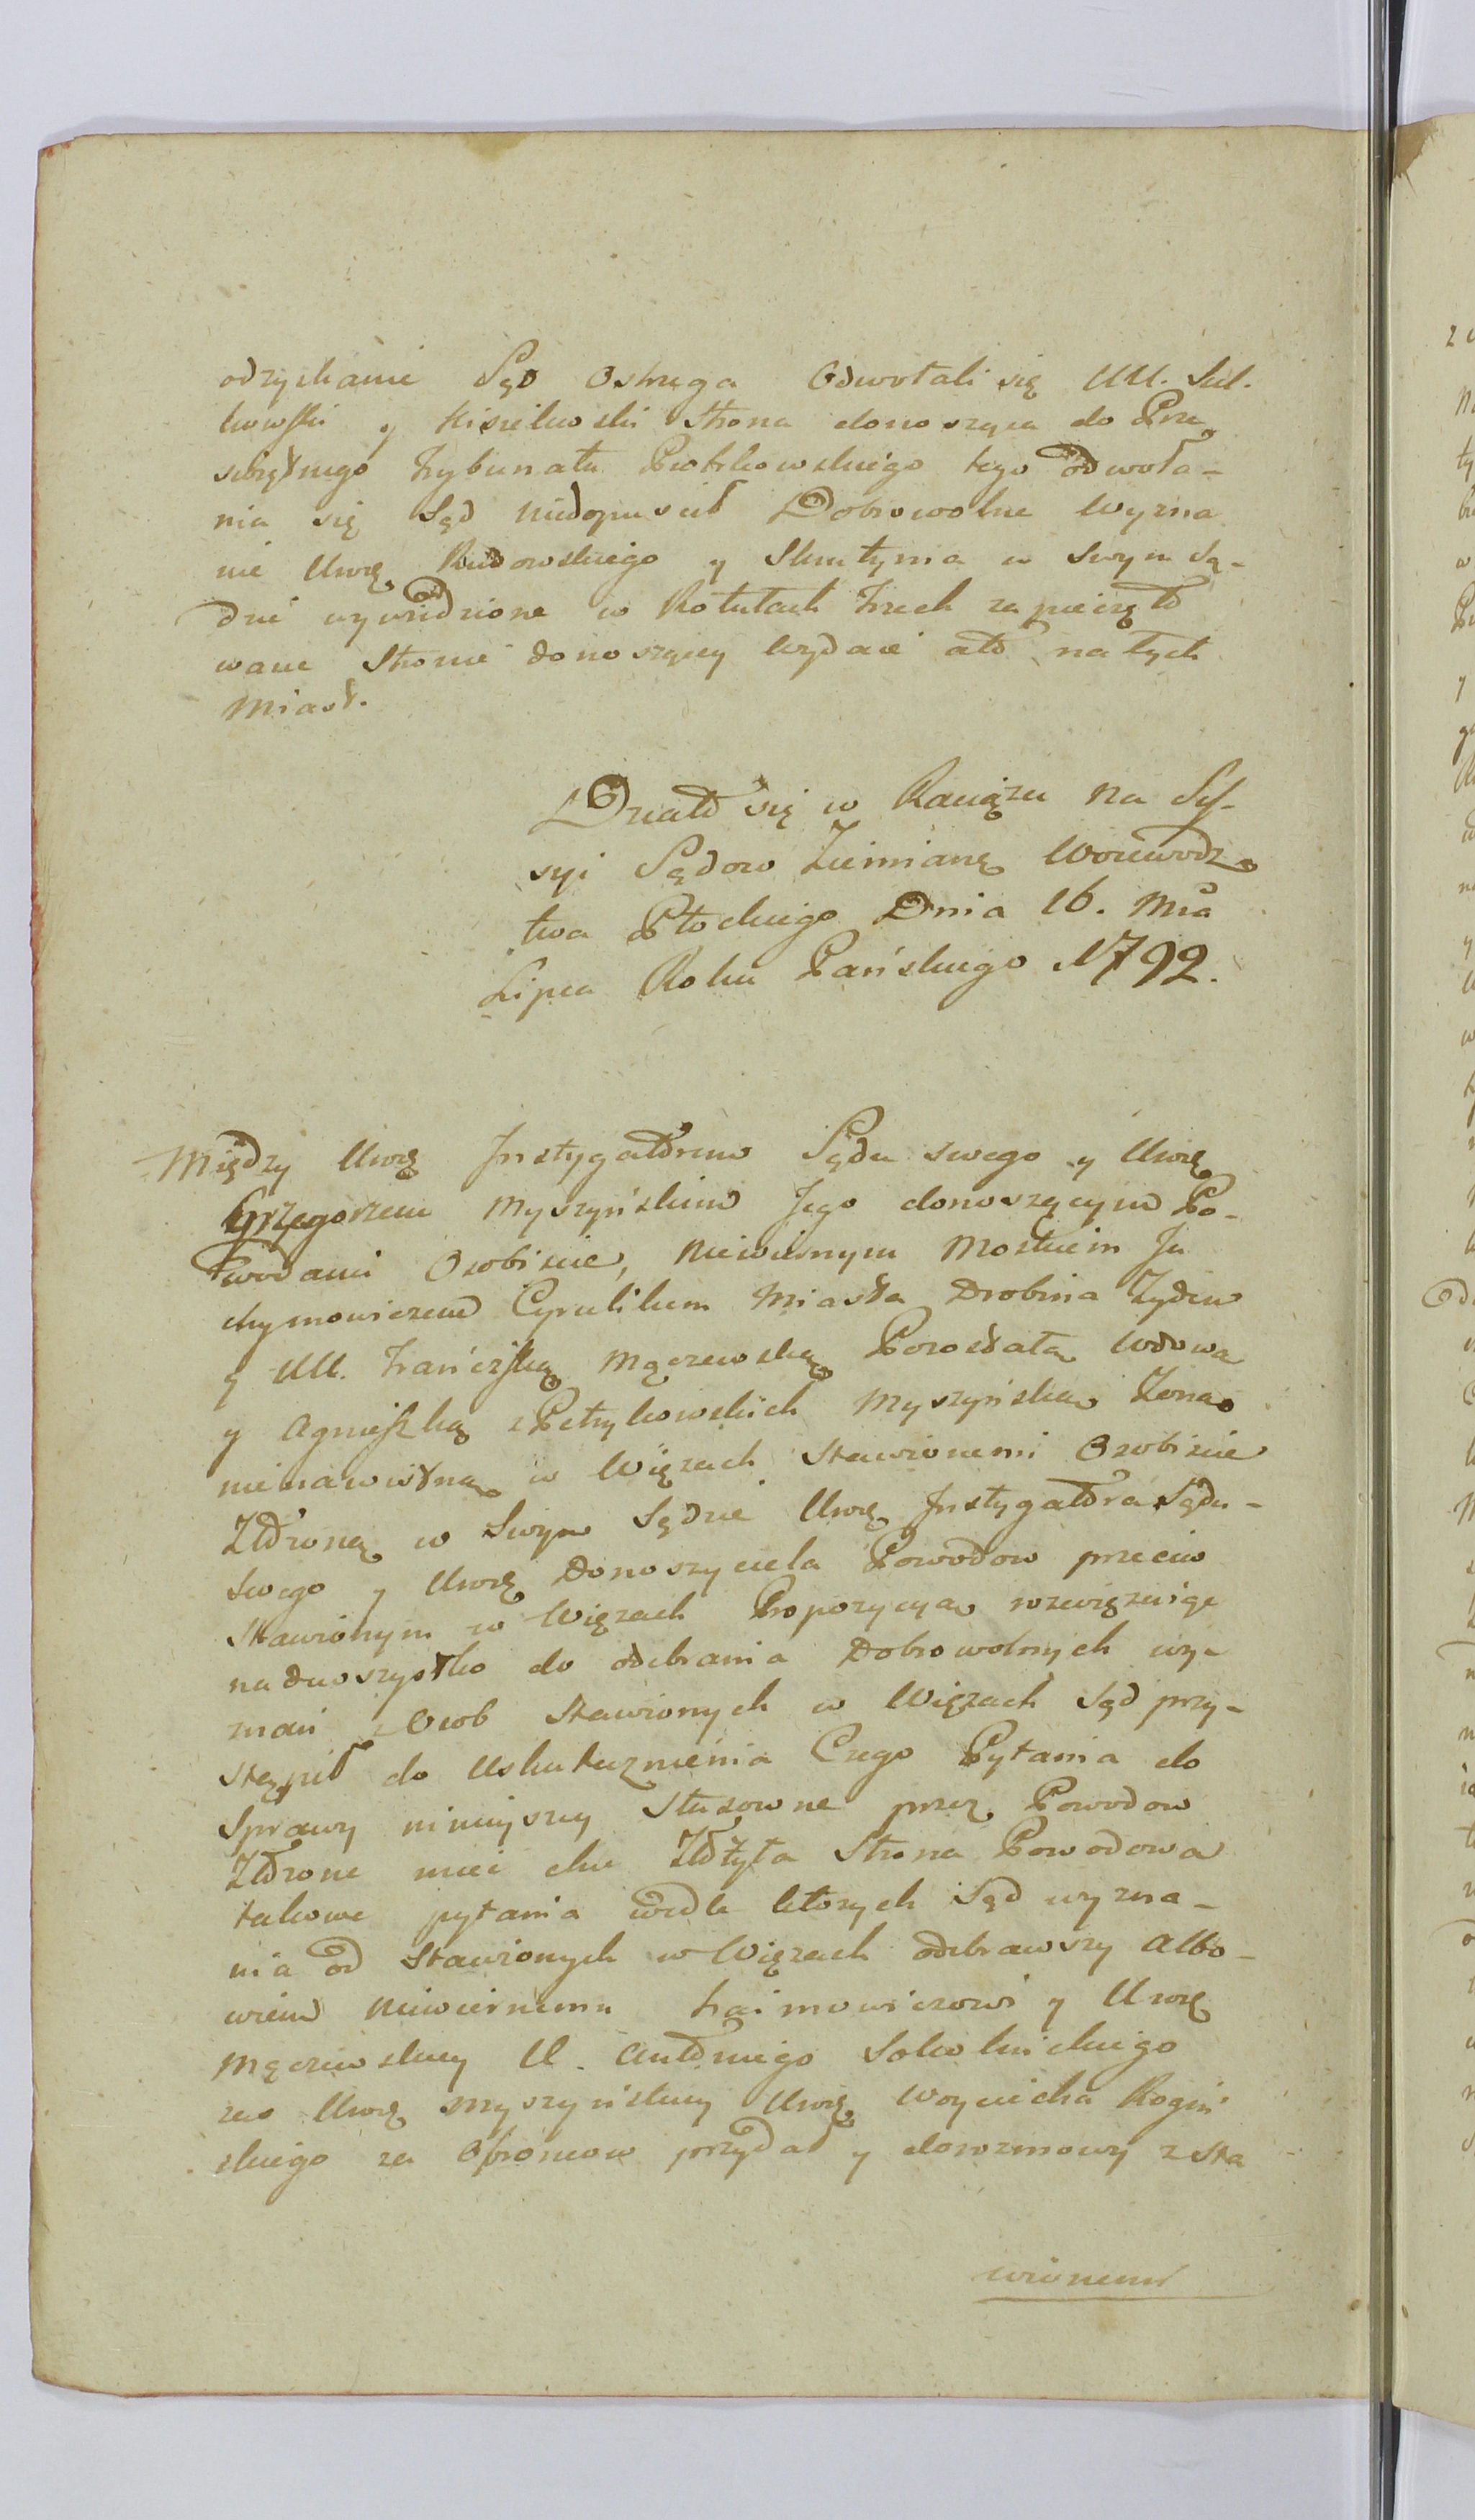 odzyskanie Sąd Ostrzega Odwołali się UU. Sul-
kowski y Kisielewski Strona donosząca do Prze
swiętnego Trybunału Piotrkowskiego tego odwoła-
nia się Sąd niedopuscił Dobrowolne wyzna
nie Urę Rudowskiego y Skrutynia w swym Są-
dzie wywiedzione w Rotułach Trzech zapieczęto
wane Stronie donoszącey wydaie a to natych
miast.
Działo się w Raciążu na Ses-
syi Sądow Ziemianę Woiewodz
twa Płockiego Dnia 16. Mca
Lipca Roku Pańskiego 1792.
Między Urę Instygatorem Sądu swego y Urę
Grzegorzem Myszyńskim Jego donoszącym Po-
wodami Osobiscie, Niewiernym Moskiem Ja
chymowiczem Cyrulikiem Miasta Drobina Zydem
y UU. Franciszką Mączewską Pozostałą Wdową
y Agnieszką z Petrykowskich Myszyńską Zoną
w Więzach Stawionemi Osobiscie
Złożoną w Swym Sądzie Urę Instygatora Sądu-
swego y Urę Donosyciela Powodow przeciw
Stawionym w Więzach Propozycyą rozwiązuiąc
nadewszystko do odebrania Dobrowolnych wy-
znań z Osob Stawionych w Więzach Sąd przy-
stąpił do Uskutecznienia Czego Pytania do
Sprawy ninieyszey Stusowne przez Powodow
Złożone mieć chce Złożyła Strona Powodowa
takowe pytania wedle ktorych Sąd wyzna-
nia od Stawionych w Więzach odebrawszy albo-
wiem Niewiernemu y Urę
Mączewskiey U. Antoniego Sokolnickiego
zas Urę Myszyńskiey Urę Woyciecha Rogiń
skiego za Obroncow przydał y dorozmowy z Sta
wionemi